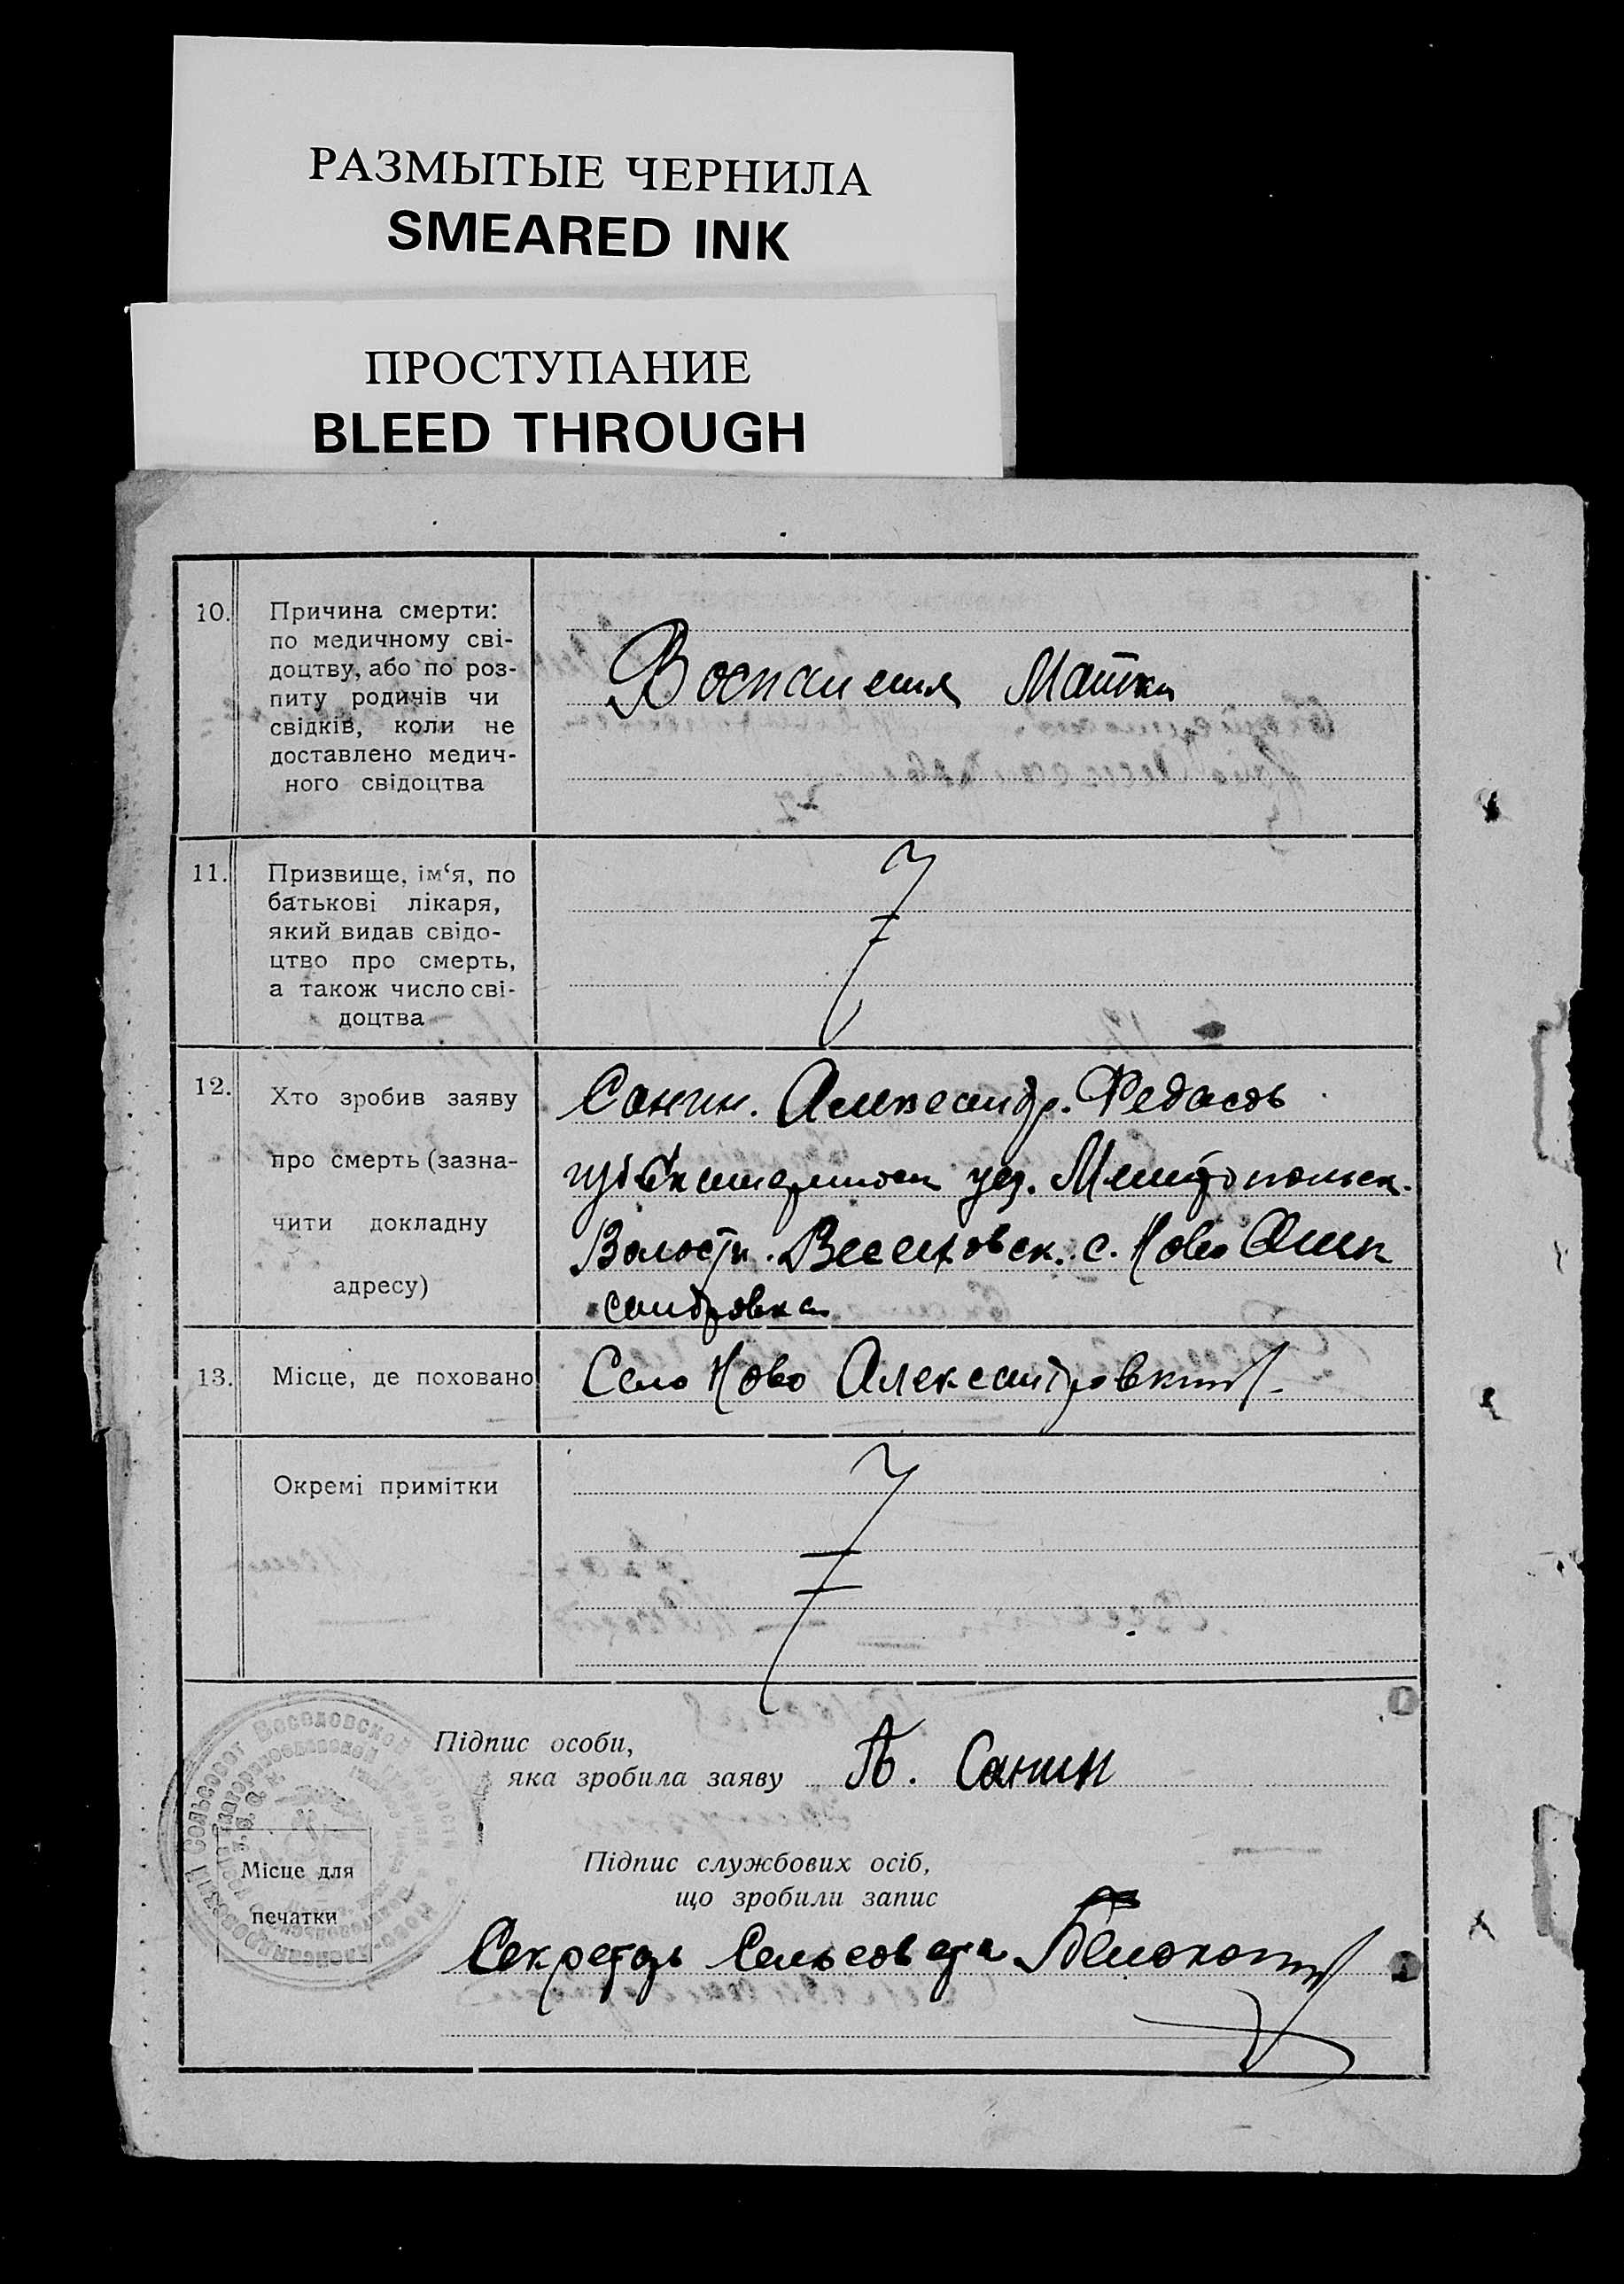 РАЗМЫТЫЕ ЧЕРНИЛА
SMEARED INK
ПРОСТУПАНИЕ
BLEED THROUGH
10.
Причина смерти:
по медичному сві-
доцтву, або по роз-
питу родичів чи
свідків, коли не
доставлено медич-
ного свідоцтва
Воспаления Матки
11.
Призвище, ім‘я, по
батькові лікаря,
який видав свідо-
цтво про смерть,
а також число сві-
доцтва
12.
Хто зробив заяву
про смерть (зазна-
чити докладну
адресу)
Санин. Александр.
уез. Мелитопольск.
Волости. Веселовск. с. Ново Алек
сандровка
13.
Місце, де поховано
Село Ново Александровки
Окремі примітки
Підпис особи,
яка зробила заяву
А. Санин
Місце для
печатки
Підпис службових осіб,
що зробили запис
Секретарь Сельсовета